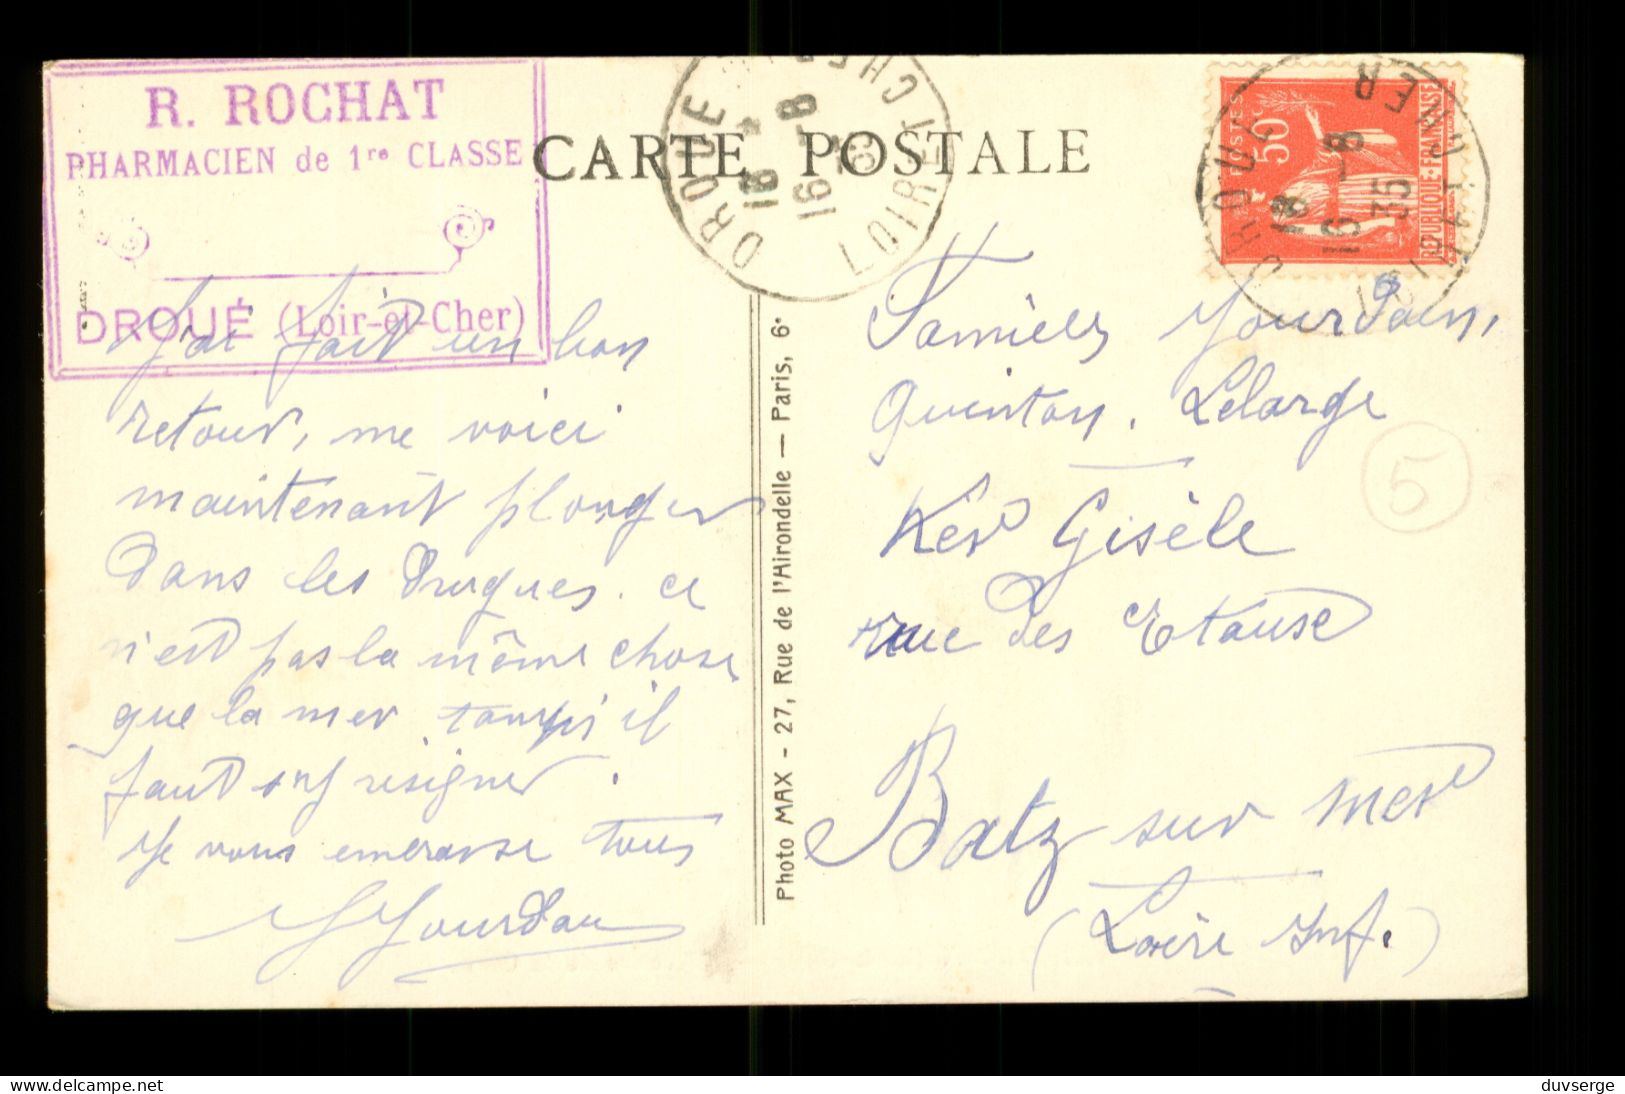 R. ROCHAT
PHARMACIEN de 1re CLASSE
DROUÉ (Loir-et-Cher)
CARTE POSTALE
DROUE
18 *
16 - 8
35
LOIR ET CHER
POSTES
50c
REPUBLIQUE FRANÇAISE
DROUE
18
16 - 8
35
LOIR ET CHER
J'ai fait un bon
retour, me voici
maintenant plonger
dans les drogues. ce
n'est pas la même chose
que la mer tampis il
faut s'y résigner.
Je vous emerasse tous
Jourdan
Photo MAX - 27, Rue de l'Hirondelle — Paris, 6e
Familles Jourdain,
Quinton. Lelarge
Ker Gisèle
rue des Etause
Batz sur mer
(Loire Inf.)
5
duvserge